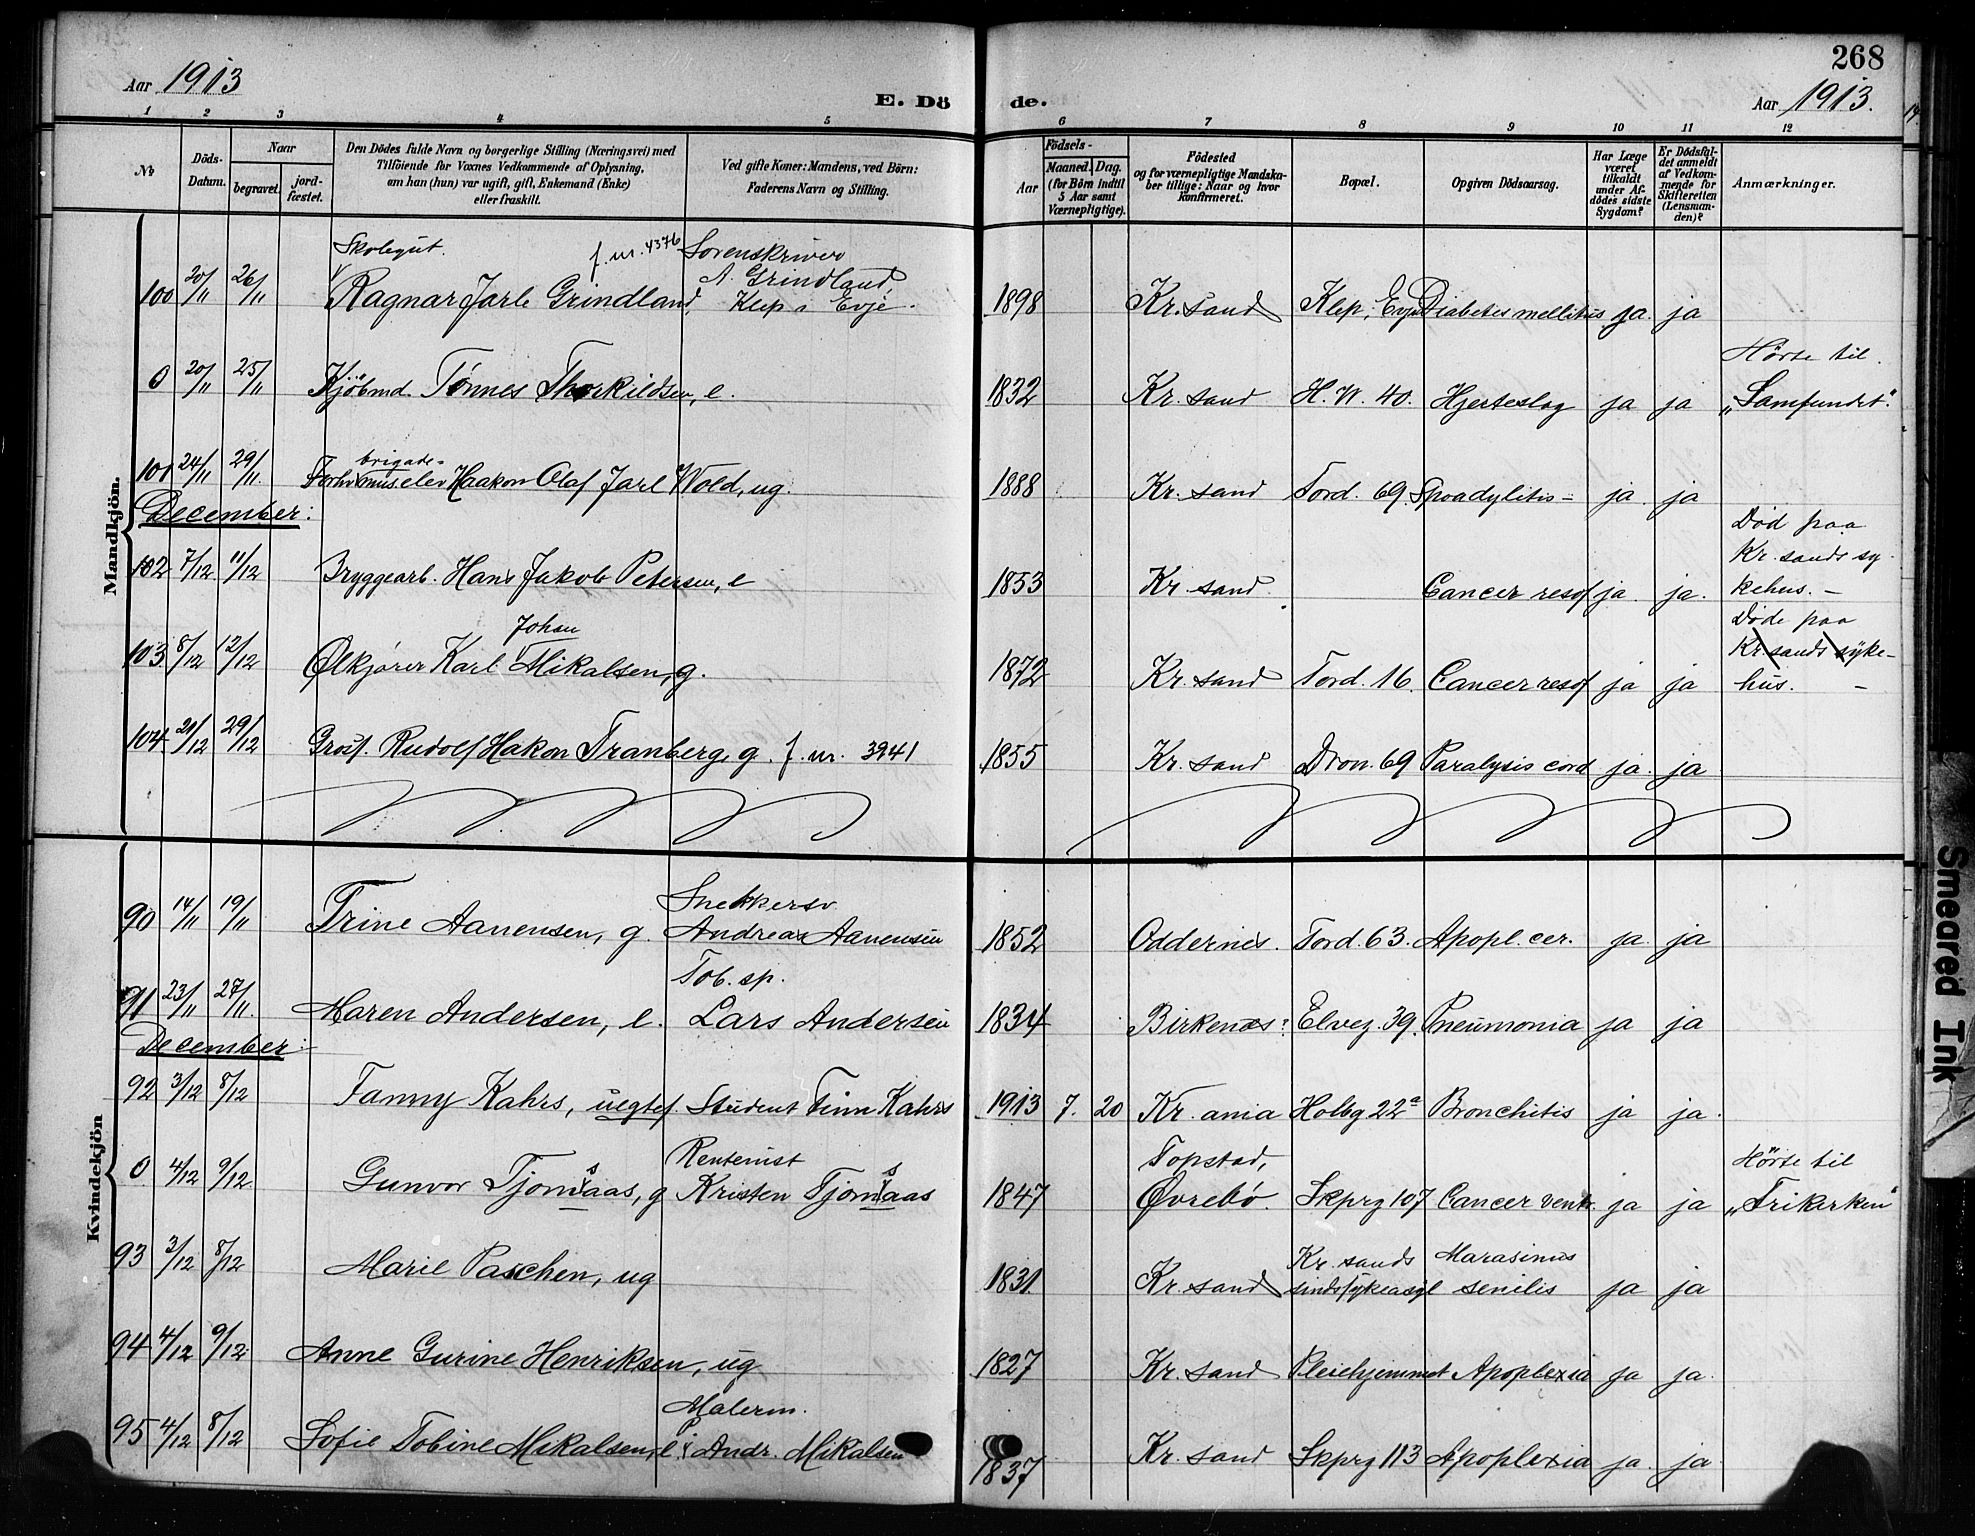 268
Aar 1913
E. Döde.
Aar 1913.
1 2 3 4 5 6 7 8 9 10 11 12
No
Döds-Datum.
Naar
begravet.
jord-fæstet.
Den Dödes fulde Navn og borgerlige Stilling (Næringsvei) med
Tilföiende for Voxnes Vedkommende af Oplysning,
om han (hun) var ugift, gift, Enkemand (Enke)
eller fraskilt.
Ved gifte Koner: Mandens, ved Börn:
Faderens Navn og Stilling.
Födsels-
Aar
Maaned. Dag.
(for Börn indtil
5 Aar samt
Værnepligtige).
Födested
og for værnepligtige Mandska-
ber tillige: Naar og hvor
konfirmeret.
Bopæl.
Opgiven Dödsaarsag.
Har Læge
været
tilkaldt
under Af-
dödes sidste
Sygdom?
Er Dödsfal-
det anmeldt
af Vedkom-
mende for
Skifteretten
(Lensman-
den)?
Anmærkninger.
Mandkjön.
Skolegut. f. nr. 4376 Sorenskriver
A. Grindland,
100 20/11 26/11 Ragnar Jarle Grindland, Klep i Evje. 1898 Kr.sand Klep, Evje Diabetes mellitus ja. ja
Hørte til
0 20/11 25/11 Kjöbmd. Tønnes Thorkildsen, e. 1832 Kr. sand H. W. 40. Hjerteslag ja ja „Samfundet".
brigade-
101 24/11 29/11. Forhv. mus.elev Haakon Olaf Jarl Wold, ug. 1888 Kr. sand Tord. 69. Spondylitis - ja ja
December:
Død paa
Kr. sands sy-
102 7/12 11/12 Bryggearb. Hans Jakob Petersen, e 1853 Kr. sand. Cancer resof ja. ja. kehus. -
Johan
Døde paa
Kr.sands syke-
103 8/12 12/12 Ølkjører Karl Mikalsen, g. 1872 Kr. sand Tord. 16. Cancer resof ja ja hus. -
104 21/12 29/12 Gross. Rudolf Hakon Tranberg, g. f. nr. 3941 1855 Kr. sand Dron. 69 Paralysis cord ja. ja
Kvindekjön
Snekkersv.
90 14/11 19/11 Trine Aanensen, g. Andreas Aanensen 1852 Oddernes. Tord. 63. Apopl. cer. ja. ja
Tob. sp.
91 23/11 27/11. Maren Andersen, e. Lars Andersen 1834 Birkenes: Elveg. 39. Pneumonia ja ja
December:
92 3/12 8/12 Fanny Kahrs, uegtef. Student Finn Kahrs 1913 7. 20 Kr. ania Holbg 22a Bronchitis ja ja.
Rentenist Topstad, Hørte til
0 4/12 9/12 Gunvor Tjomsaas, g Kristen Tjomsaas 1847 Øvrebö. Skprg 107 Cancer ventr. ja ja „Frikirken"
Kr. sands Marasmus
93 3/12 8/12 Marie Paschen, ug 1831 Kr. sand sindssykeasyl senilis ja ja
94 4/12 9/12 Anne Gurine Henriksen, ug 1827 Kr. sand Pleiehjemmet Apoplexia ja ja.
Malerm.
95 4/12 8/12 Sofie Tobine Mikalsen, e. P. Andr. Mikalsen 1837 Kr. sand Skprg 113 Apoplexia ja. ja
Smeared Ink